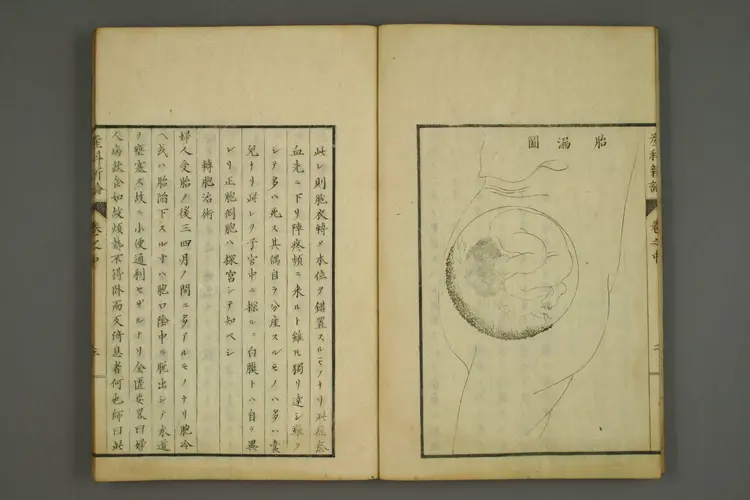 胎漏圖
産科新論 卷之中 二
此レ則胞衣轉〆本位ヲ錯置スルモノナリ此症然
血先ニ下リ陣疼頻ニ来ルト雖𪜈獨リ達シ難ク
シテ多ハ死ス其偶自ラ分産スルモノハ多ハ
兒ナリ此レヲ子宮中ニ探ルニ白膜トハ自ラ異
レリ正胞倒胞ハ探宮シテ知ベシ
轉胞治術
婦人受胎ノ後三四月ノ間ニ多アルモノナリ胞冷
ヘ或ハ胎陥下スル寸ハ胞口陰中ニ脱出シテ水道
ヲ壅塞ス故ニ小便通利セザルナリ金匱要畧曰婦
人病飲食如故煩熱不得卧而反倚息者何也師曰此
産科新論 卷之中